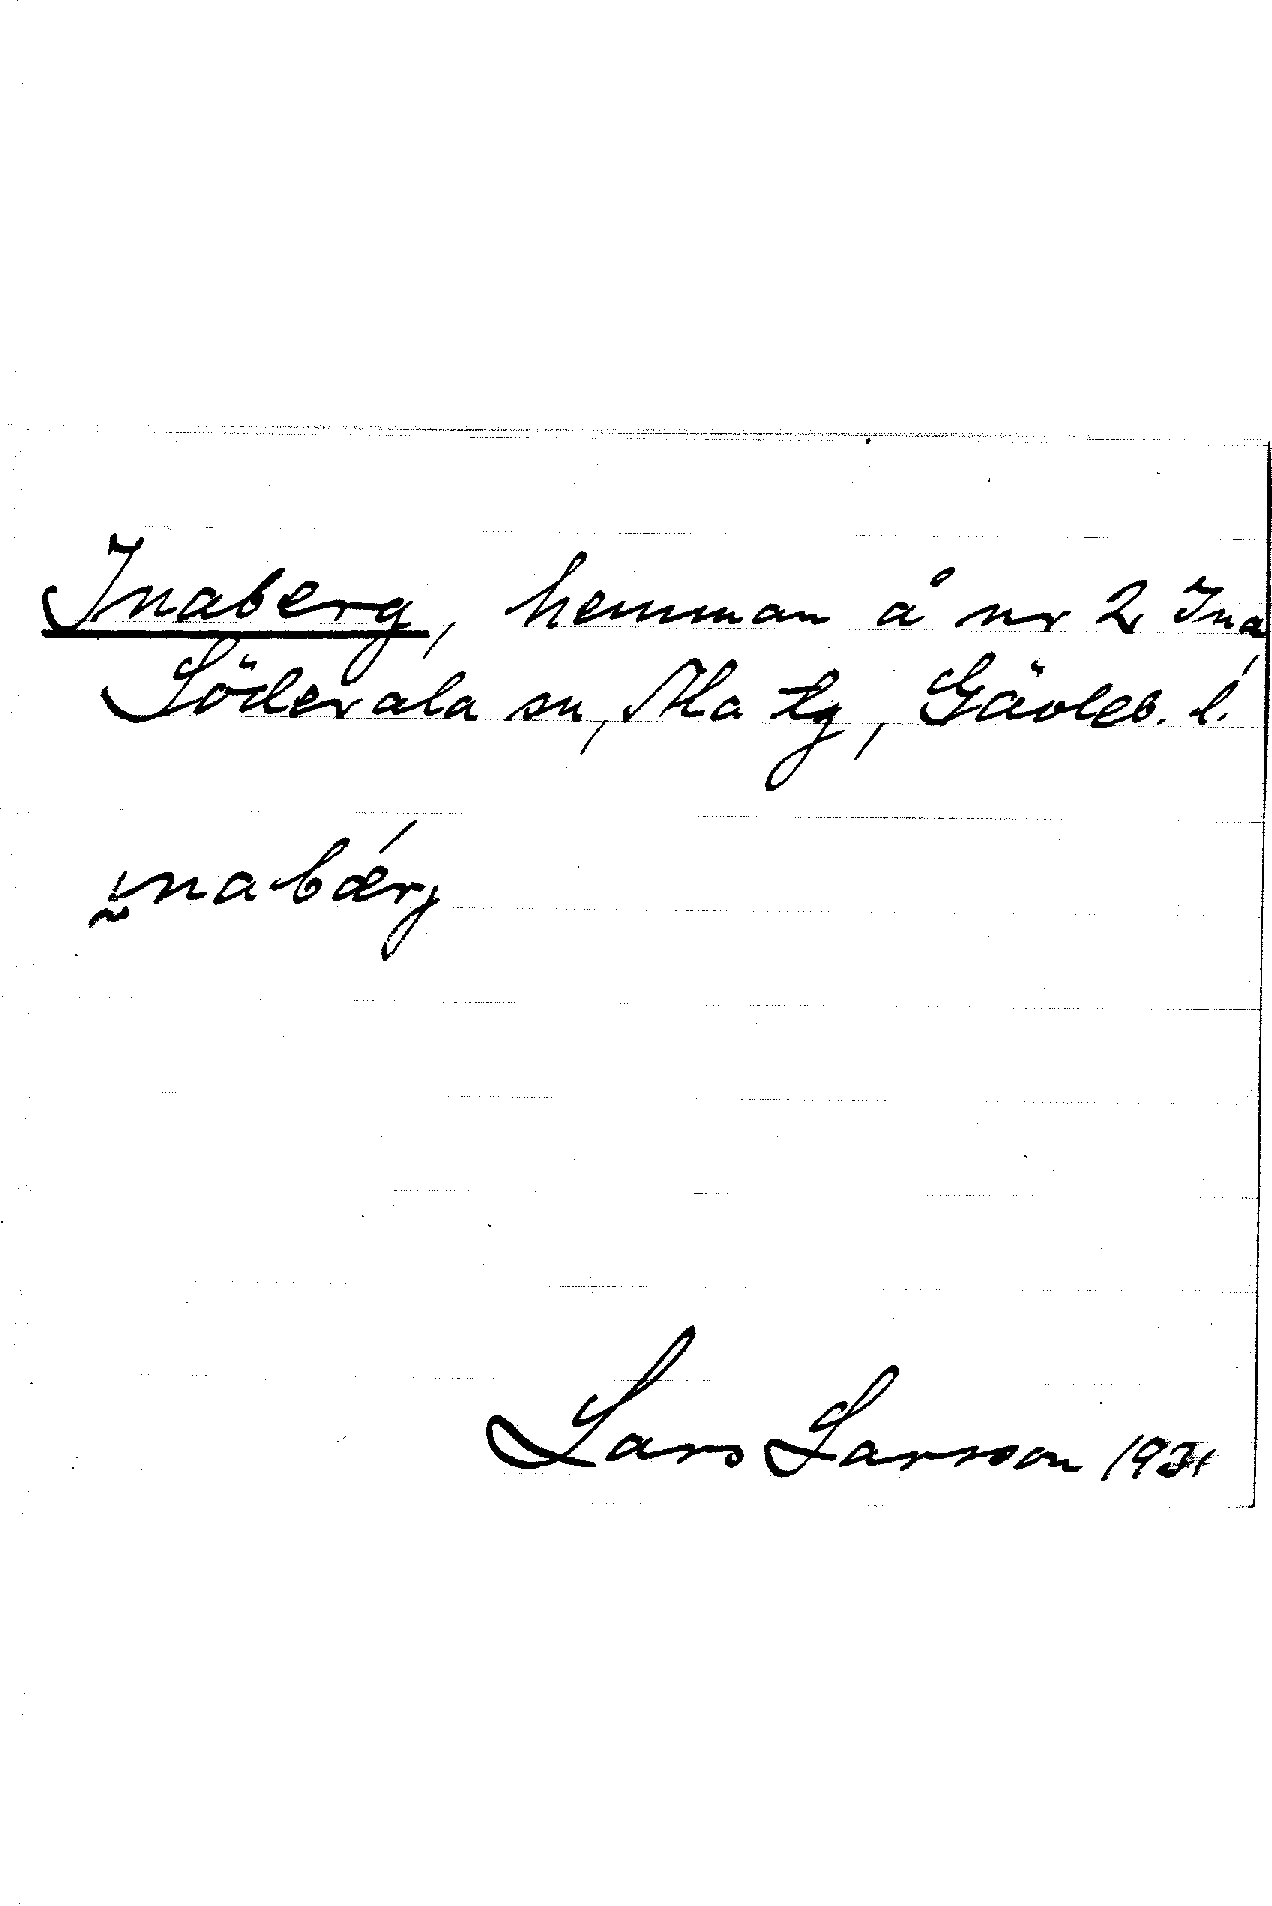 Inaberg, hemman å nr 2 Ina,
Söderala sn, Ala tg, Gävleb. l.
ınabǽrj
Lars Larsson 1931